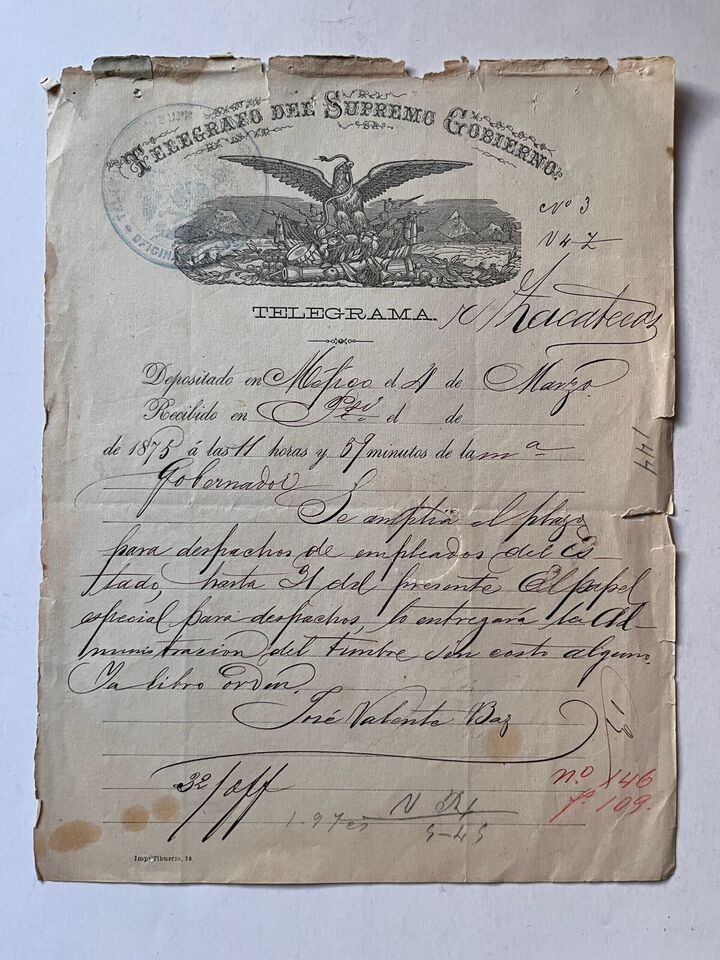 TELEGRAFO DEL SUPREMO GOBIERNO.
OFICINA
No 3
TELEGRAMA.
Zacatecas
Depositado en México el 4 de Marzo
Recibido en el de
de 1875 á las 11 horas y 59 minutos de la ma
Gobernador
Se amplia el plazo
para despachos de empleados del Es-
tado, hasta 31 del presente El papel
especial para despachos, lo entregará la Ad-
ministracion del timbre sin costo alguno.
Ya libro orden.
José Valente Baz
144
32/off
no. 146
109.
Imp. Tiburcio, 18.